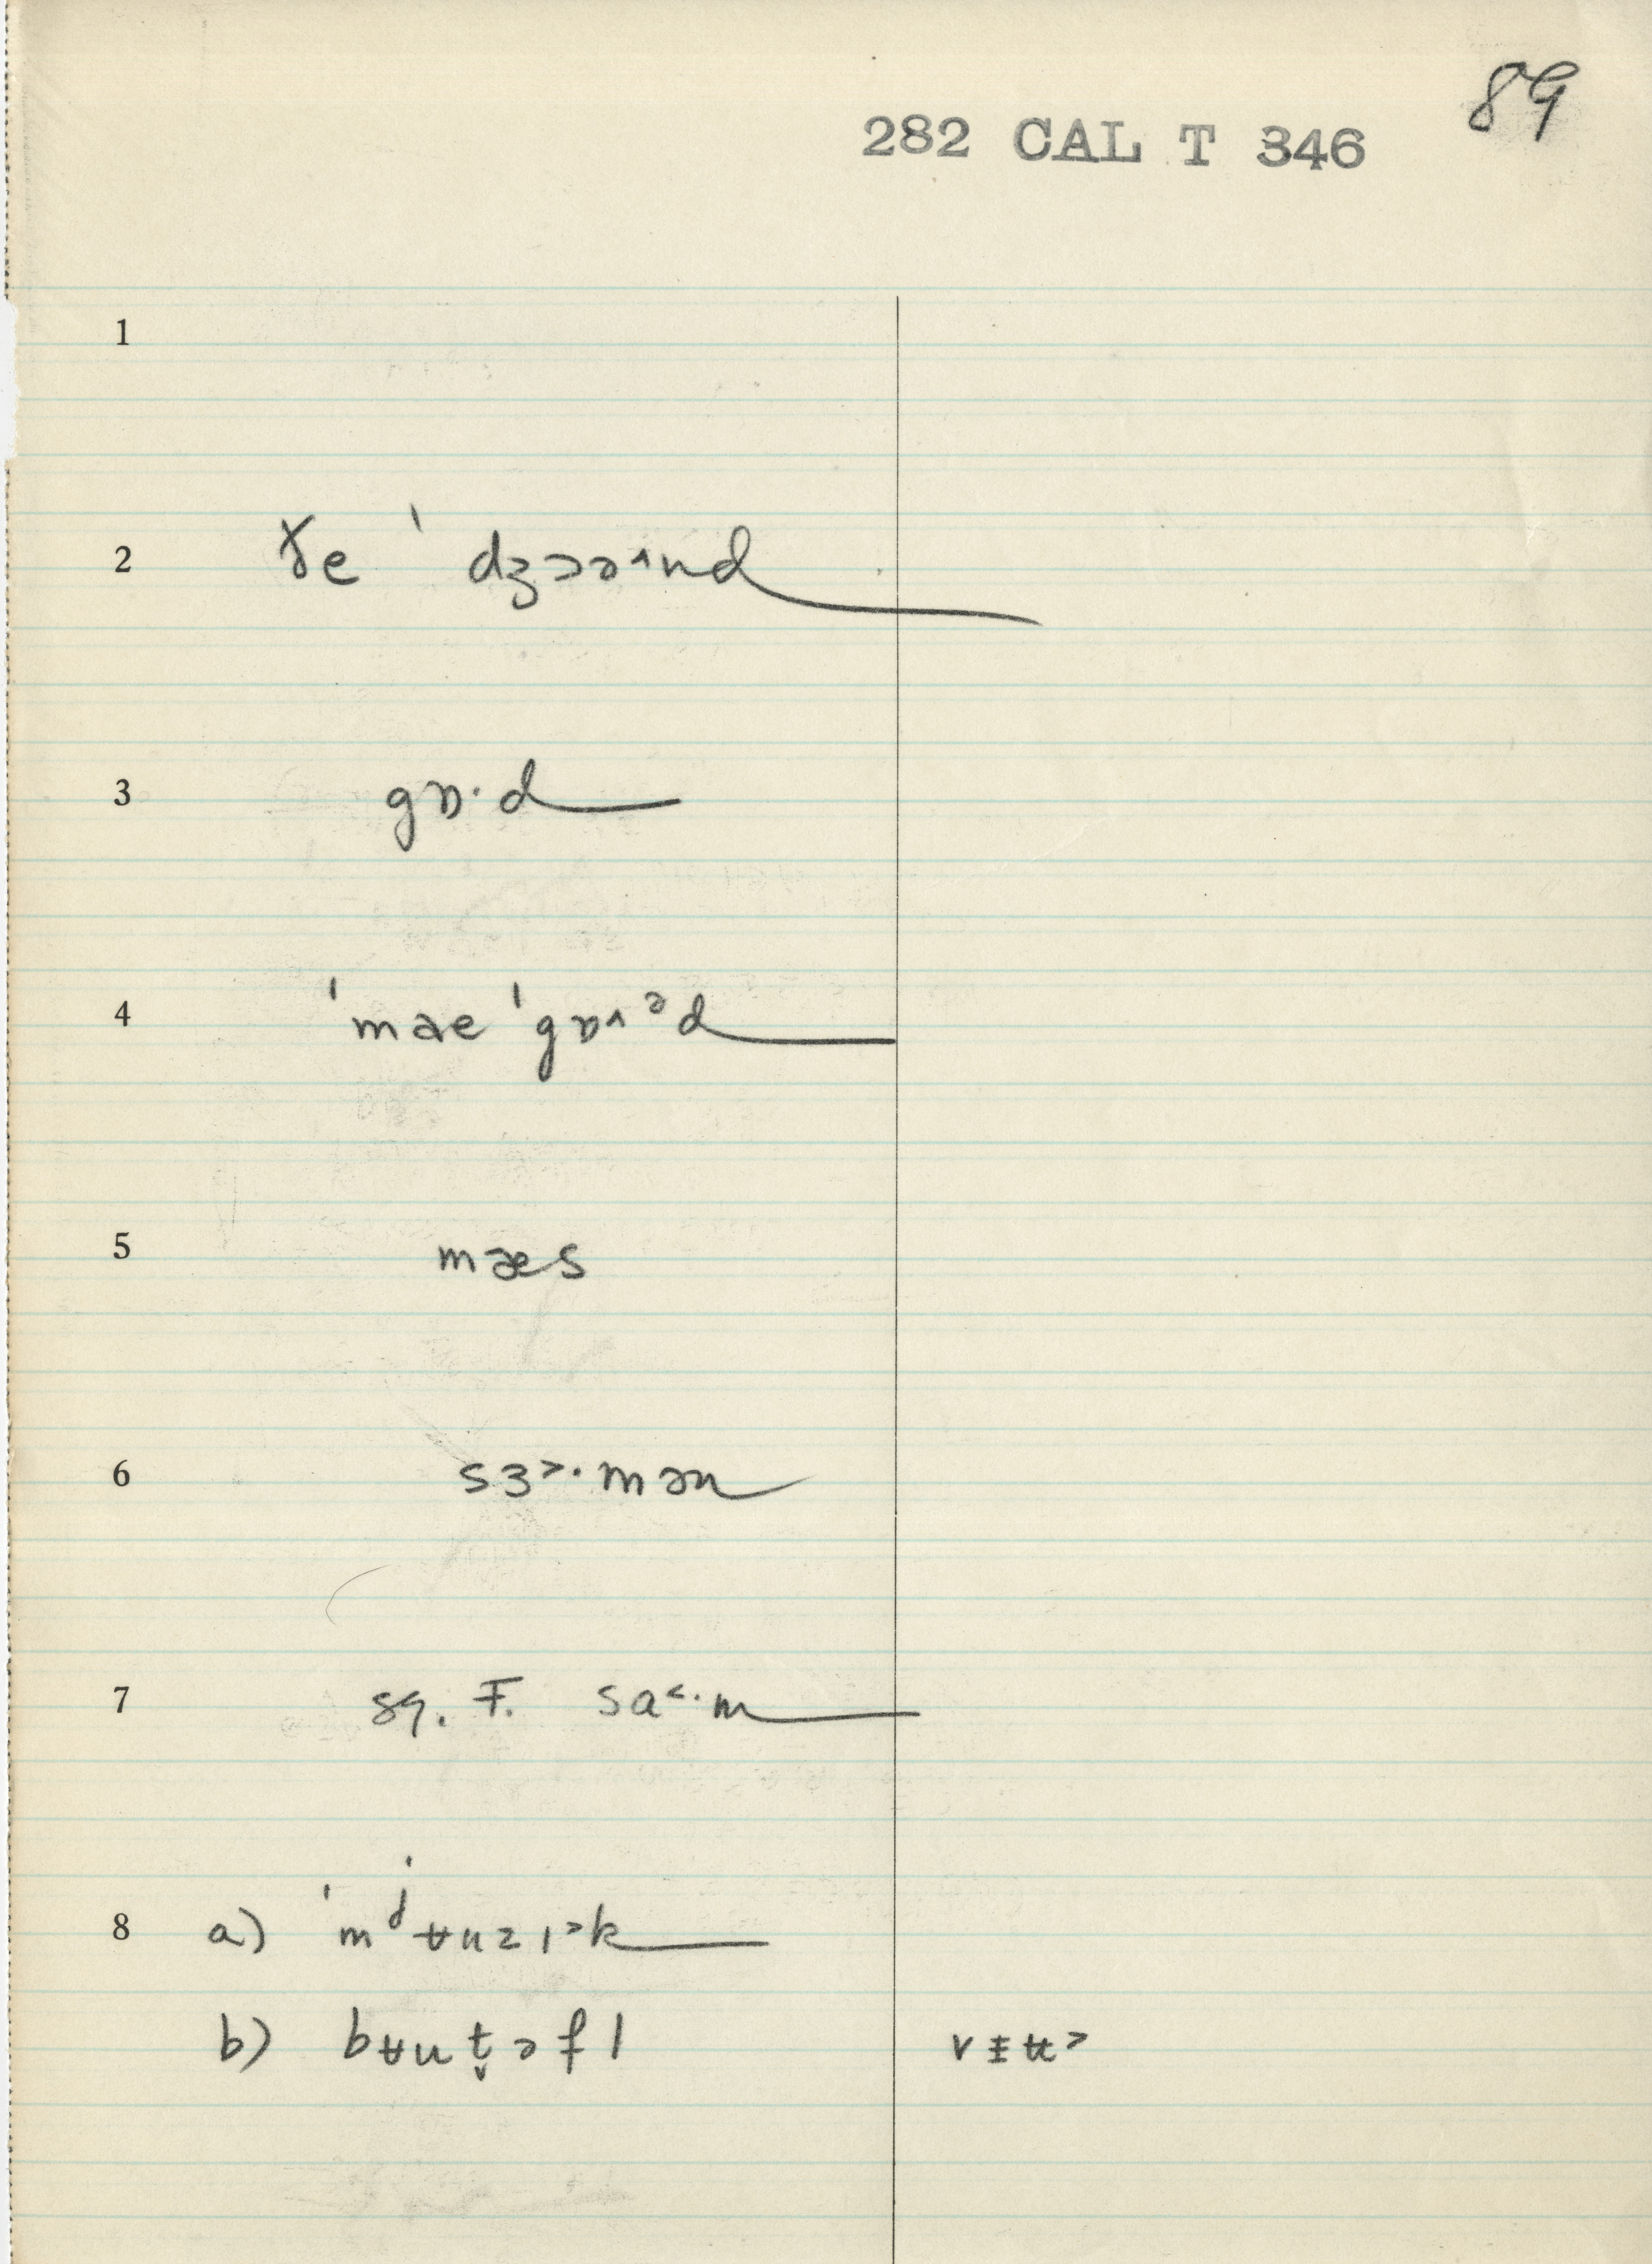 89
282 CAL T 346
1
2 ɤe ˈ dʒɔə˄nd
3 gɒ·d
4 ˈmae ˈgɒ˄ᵊd
5 mæs
6 sɜ˃·mən
7 sq. F. sa˂·m
8 a) ˈmʲʉuzɪ˃k
b) bʉut̬əfl v ɪ̵ ʉ˃